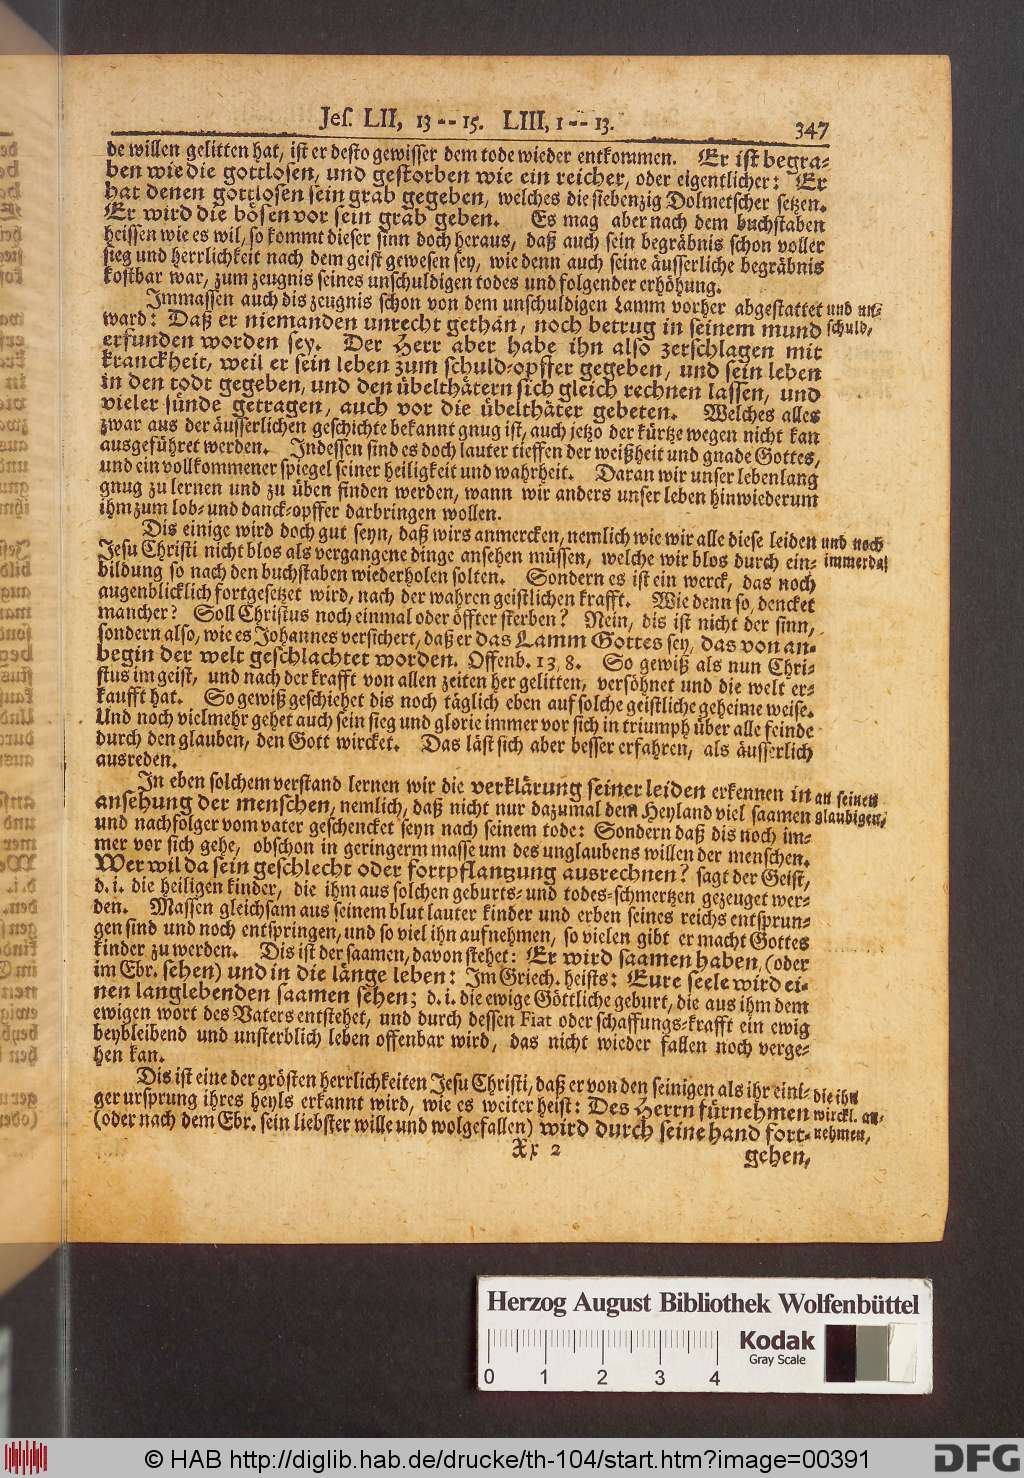 Jes. LII, 13 -- 15. LIII, 1 -- 13. 347
de willen gelitten hat, ist er desto gewisser dem tode wieder entkommen. Er ist begra-
ben wie die gottlosen, und gestorben wie ein reicher, oder eigentlicher: Er
hat denen gottlosen sein grab gegeben, welches die siebenzig Dolmetscher setzen.
Er wird die bösen vor sein grab geben. Es mag aber nach dem buchstaben
heissen wie es wil, so kommt dieser sinn doch heraus, daß auch sein begräbnis schon voller
sieg und herrlichkeit nach dem geist gewesen sey, wie denn auch seine äusserliche begräbnis
kostbar war, zum zeugnis seines unschuldigen todes und folgender erhöhung.
Immassen auch dis zeugnis schon von dem unschuldigen Lamm vorher abgestattet
und un-
ward: Daß er niemanden unrecht gethan, noch betrug in seinem mund
schuld,
erfunden worden sey. Der Herr aber habe ihn also zerschlagen mit
kranckheit, weil er sein leben zum schuld-opffer gegeben, und sein leben
in den todt gegeben, und den übelthätern sich gleich rechnen lassen, und
vieler sünde getragen, auch vor die übelthäter gebeten. Welches alles
zwar aus der äusserlichen geschichte bekannt gnug ist, auch jetzo der kürtze wegen nicht kan
ausgeführet werden. Indessen sind es doch lauter tieffen der weißheit und gnade Gottes,
und ein vollkommener spiegel seiner heiligkeit und wahrheit. Daran wir unser lebenlang
gnug zu lernen und zu üben finden werden, wann wir anders unser leben hinwiederum
ihm zum lob- und danck-opffer darbringen wollen.
Dis einige wird doch gut seyn, daß wirs anmercken, nemlich wie wir alle diese leiden
und noch
Jesu Christi nicht blos als vergangene dinge ansehen müssen, welche wir blos durch ein-
immerda!
bildung so nach den buchstaben wiederholen solten. Sondern es ist ein werck, das noch
augenblicklich fortgesetzet wird, nach der wahren geistlichen krafft. Wie denn so, dencket
mancher? Soll Christus noch einmal oder öffter sterben? Nein, dis ist nicht der sinn,
sondern also, wie es Johannes versichert, daß er das Lamm Gottes sey, das von an-
begin der welt geschlachtet worden. Offenb. 13, 8. So gewiß als nun Chri-
stus im geist, und nach der krafft von allen zeiten her gelitten, versöhnet und die welt er-
kaufft hat. So gewiß geschiehet dis noch täglich eben auf solche geistliche geheime weise.
Und noch vielmehr gehet auch sein sieg und glorie immer vor sich in triumph über alle feinde
durch den glauben, den Gott wircket. Das läst sich aber besser erfahren, als äusserlich
ausreden.
In eben solchem verstand lernen wir die verklärung seiner leiden erkennen in
an seinen
ansehung der menschen, nemlich, daß nicht nur dazumal dem Heyland viel saamen
glaubigen,
und nachfolger vom vater geschencket seyn nach seinem tode: Sondern daß dis noch im-
mer vor sich gehe, obschon in geringerm masse um des unglaubens willen der menschen.
Wer wil da sein geschlecht oder fortpflantzung ausrechnen? sagt der Geist,
d. i. die heiligen kinder, die ihm aus solchen geburts- und todes-schmertzen gezeuget wer-
den. Massen gleichsam aus seinem blut lauter kinder und erben seines reichs entsprun-
gen sind und noch entspringen, und so viel ihn aufnehmen, so vielen gibt er macht Gottes
kinder zu werden. Dis ist der saamen, davon stehet: Er wird saamen haben, (oder
im Ebr. sehen) und in die länge leben: Im Griech. heists: Eure seele wird ei-
nen langlebenden saamen sehen; d. i. die ewige Göttliche geburt, die aus ihm dem
ewigen wort des Vaters entstehet, und durch dessen Fiat oder schaffungs-krafft ein ewig
beybleibend und unsterblich leben offenbar wird, das nicht wieder fallen noch verge-
hen kan.
Dis ist eine der grösten herrlichkeiten Jesu Christi, daß er von den seinigen als ihr eini-
die ihn
ger ursprung ihres heyls erkannt wird, wie es weiter heist: Des Herrn fürnehmen
wirckl. an-
(oder nach dem Ebr. sein liebster wille und wolgefallen) wird durch seine hand fort-
nehmen,
Xx 2 gehen,
Herzog August Bibliothek Wolfenbüttel
Kodak
Gray Scale
0 1 2 3 4
© HAB http://diglib.hab.de/drucke/th-104/start.htm?image=00391
DFG